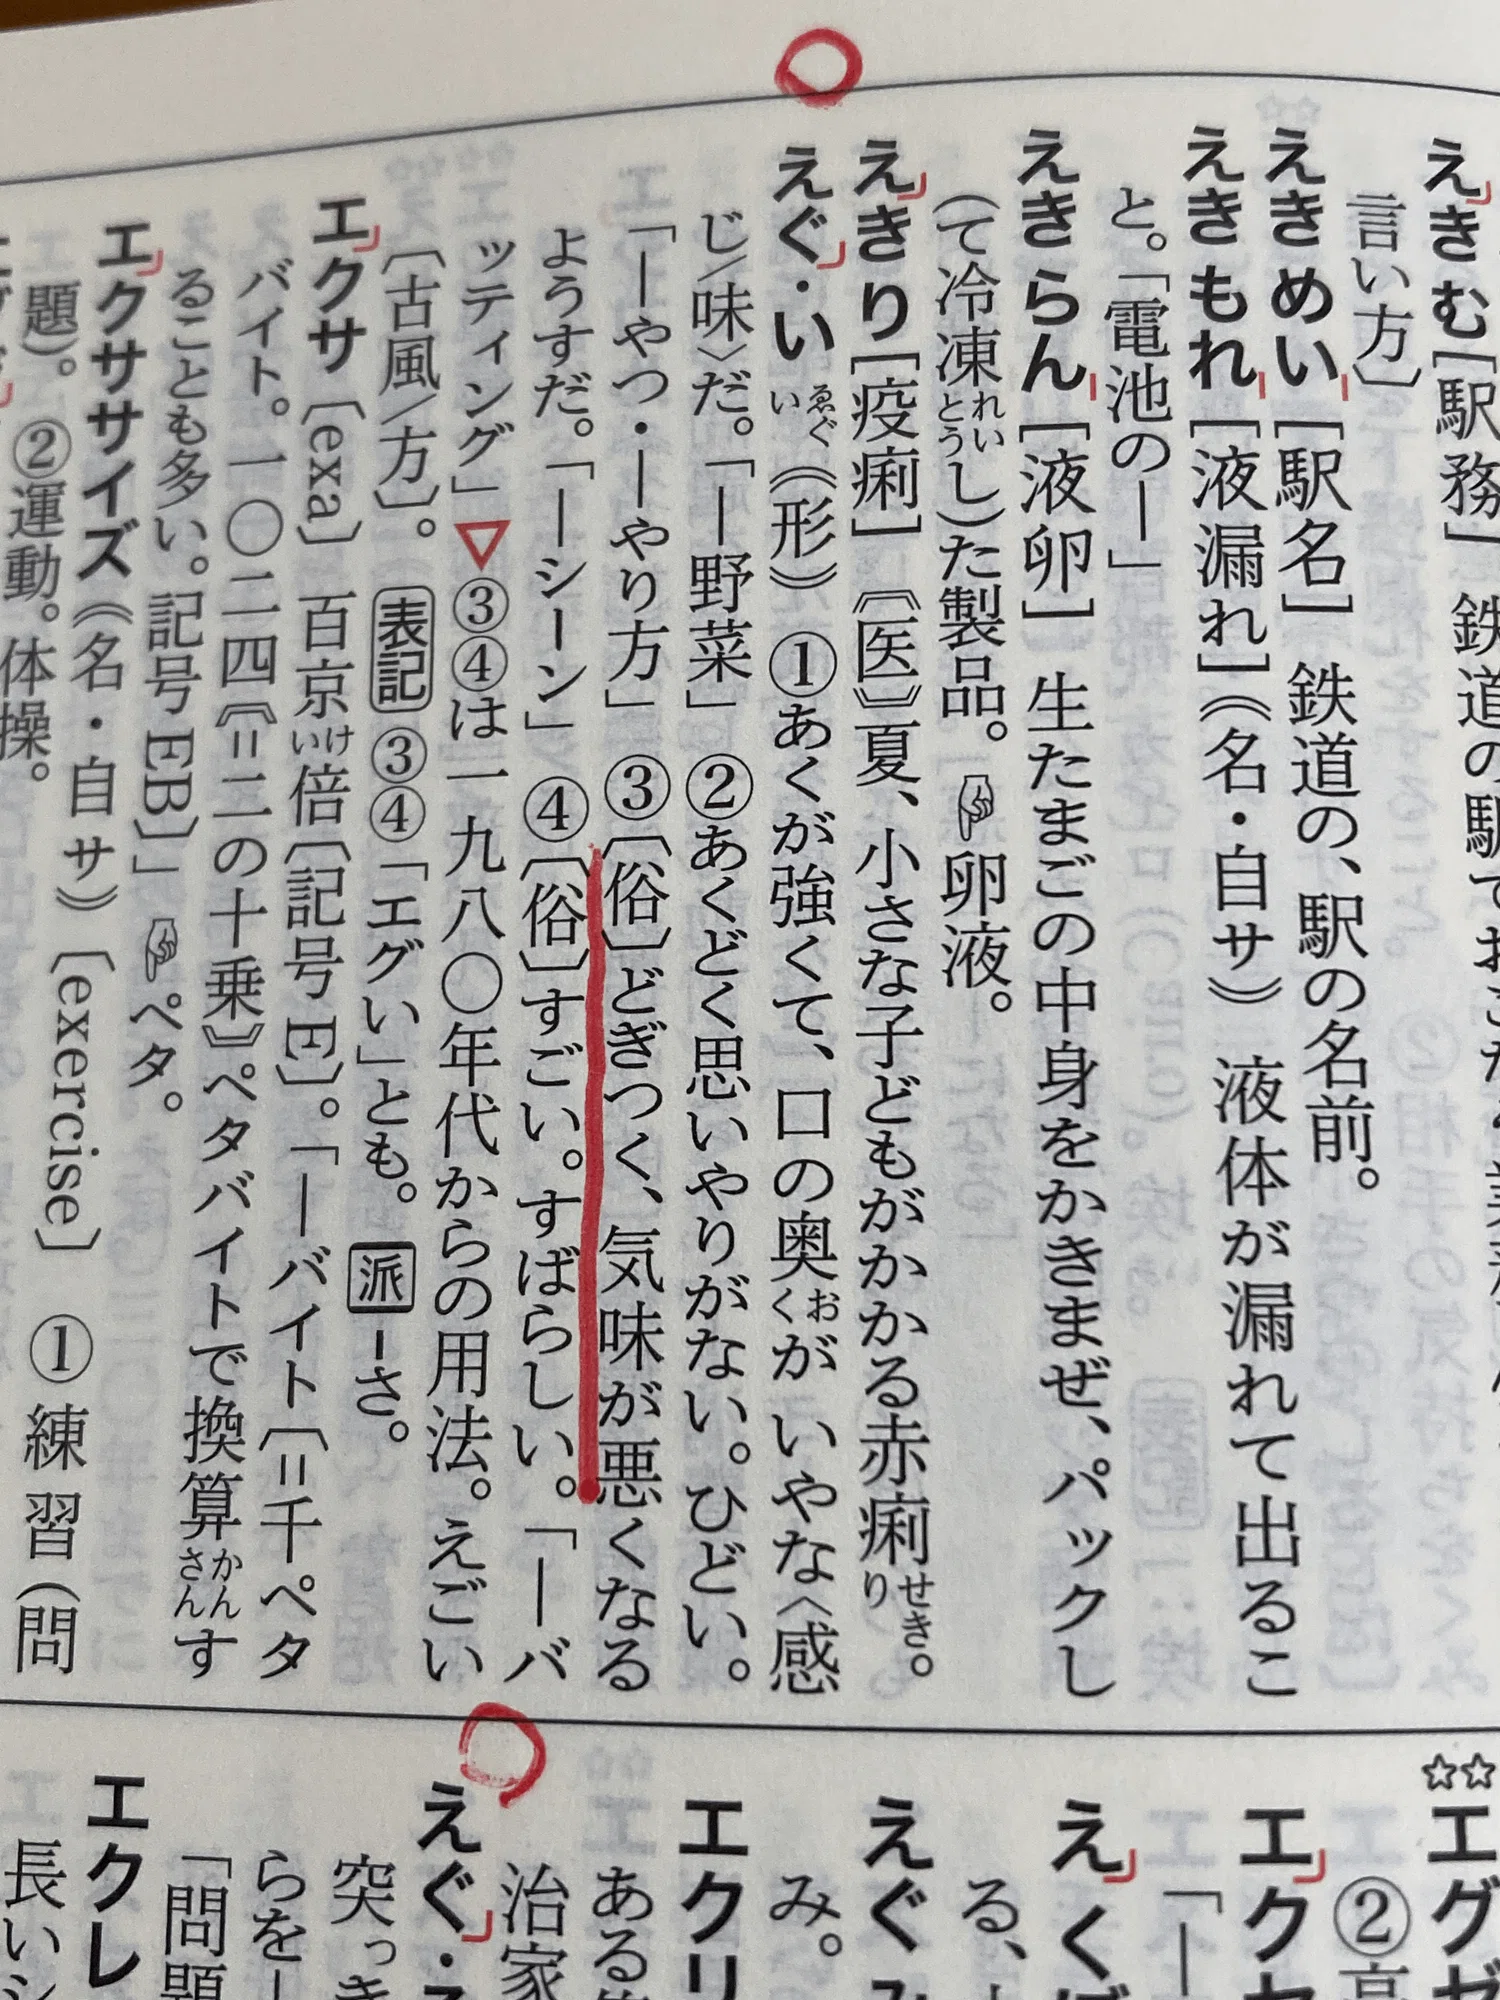 えきむ[駅務] 鉄道の駅でおこなう
言い方〕
えきめい[駅名] 鉄道の、駅の名前。
えきもれ[液漏れ]《名・自サ》 液体が漏れて出るこ
と。「電池の―」
えきらん[液卵] 生たまごの中身をかきまぜ、パックし
(て冷凍れいとうし)た製品。☞卵液。
えきりり[疫痢]〘医〙夏、小さな子どもがかかる赤痢せきり。
えぐ・いゑぐい《形》 ①あくが強くて、口の奥おくが いやな〈感
じ/味〉だ。「―野菜」 ②あくどく思いやりがない。ひどい。
「―やつ・―やり方」 ③〔俗〕どぎつく、気味が悪くなる
ようすだ。「―シーン」 ④〔俗〕すごい。すばらしい。「―バ
ッティング」▽③④は一九八〇年代からの用法。えごい
〔古風/方〕。 表記 ③④「エグい」とも。 派 -さ。
エクサ〔exa〕 百京けい倍〔記号 E〕。「―バイト〔=千ペタ
バイト。一〇二四〘=二の十乗〙ペタバイトで換算かんさんす
ることも多い。記号 EB〕」 ☞ペタ。
エクササイズ《名・自サ》〔exercise〕 ①練習(問
題)。 ②運動。体操。
☆☆エグゼ
②高
エクセ
「―
えくぼ
る、
えぐみ
み。
エクリ
ある
治家
えぐ・る
突っき
らを―
「問題
エクレ
長い